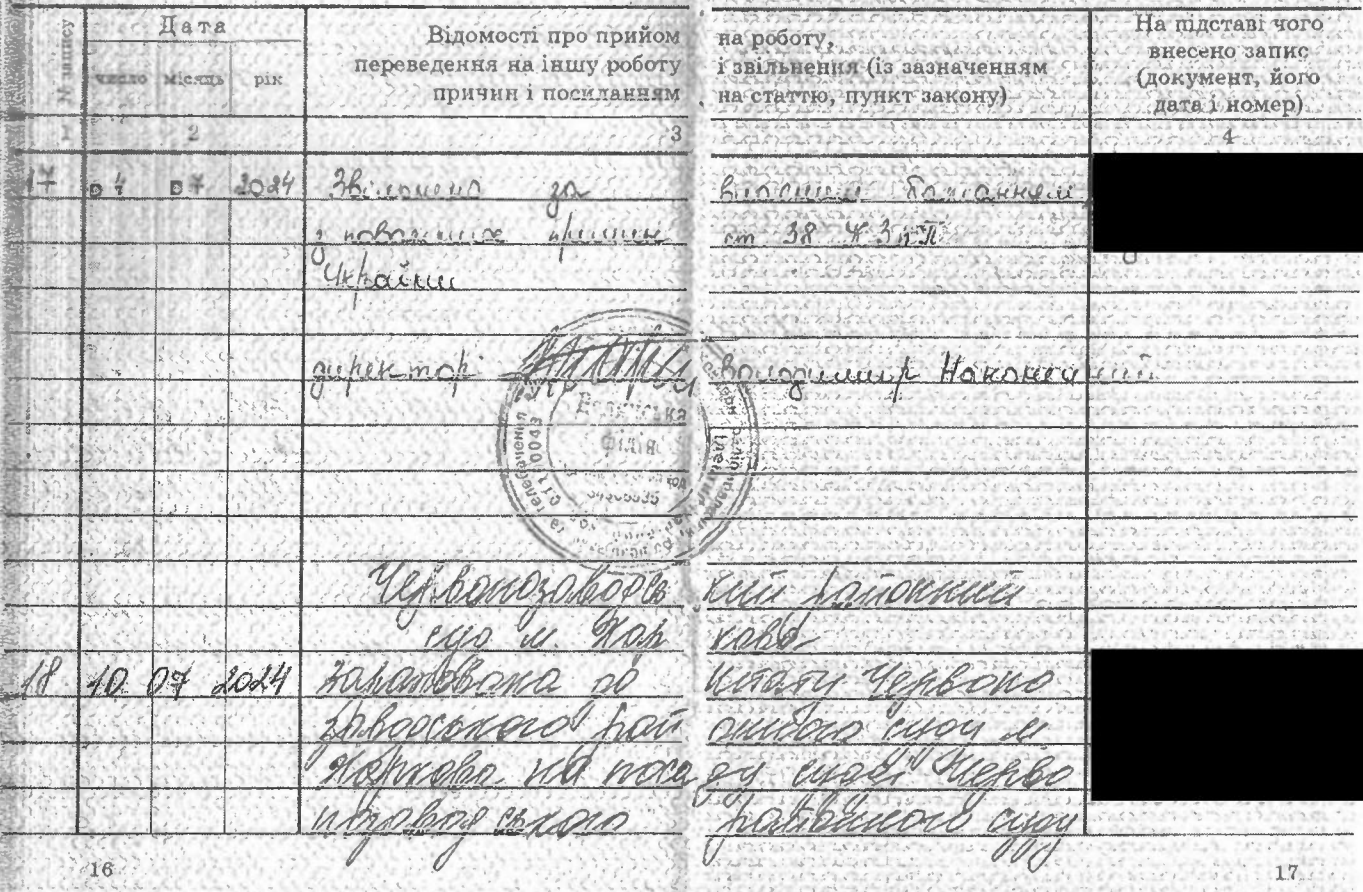 № запису
Дата
число місяць рік
Відомості про прийом на роботу,
переведення на іншу роботу і звільнення (із зазначенням
причин і посиланням на статтю, пункт закону)
На підставі чого
внесено запис
(документ, його
дата і номер)
1 2 3 4
17 04 07 2024 Звільнено за власним бажанням
з поважних причин ст 38 КЗпП
України
директор Володимир Наконечний
Волинська
філія
Червонозаводський районний
суд м. Харкова
18 10 07 2024 Зарахована до штату Червоно
заводського районного суду м
Харкова на посаду судді Черво
нозаводського районного суду
16
17